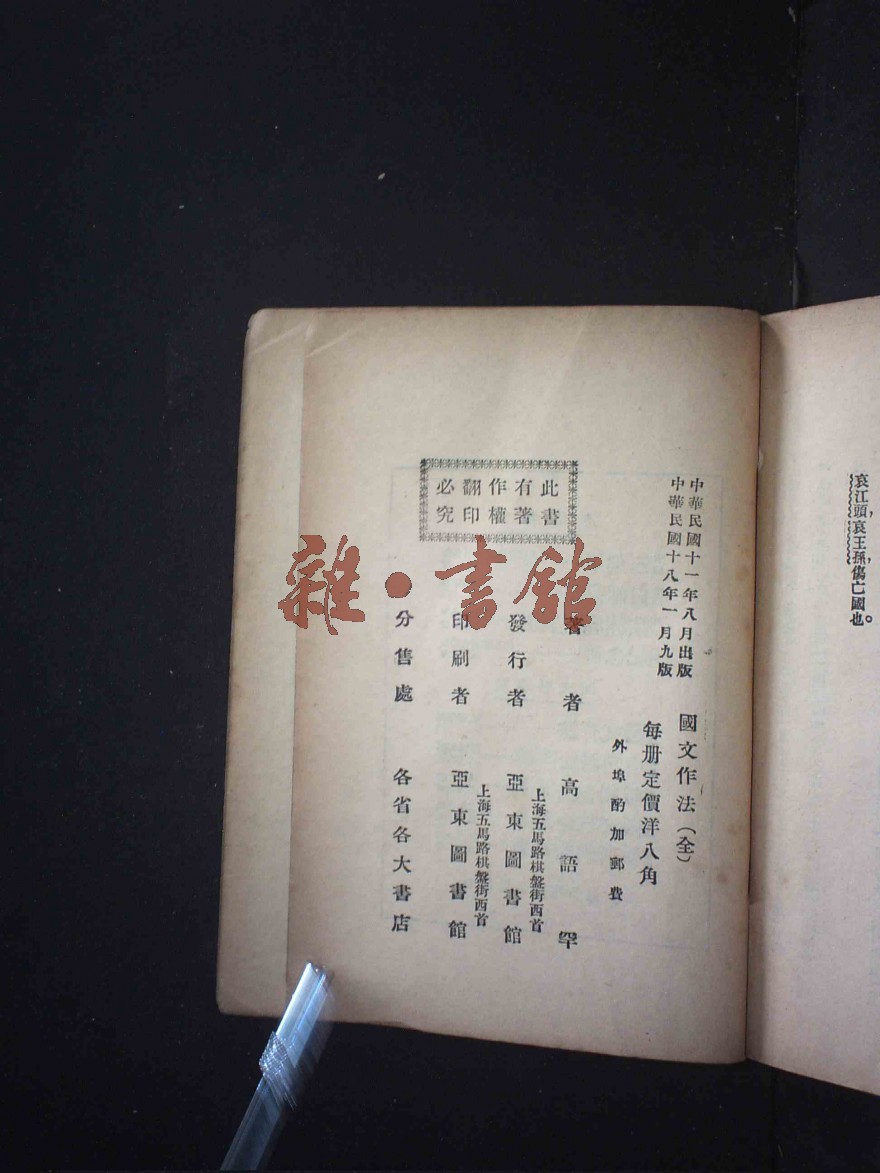 哀江頭，哀王孫，傷亡國也。
中華民國十一年八月出版
中華民國十八年一月九版
國文作法(全)
每册定價洋八角
外埠酌加郵費
此書
有著
作權
翻印
必究
著者 高語罕
上海五馬路棋盤街西首
發行者 亞東圖書館
上海五馬路棋盤街西首
印刷者 亞東圖書館
分售處 各省各大書店
雜·書館